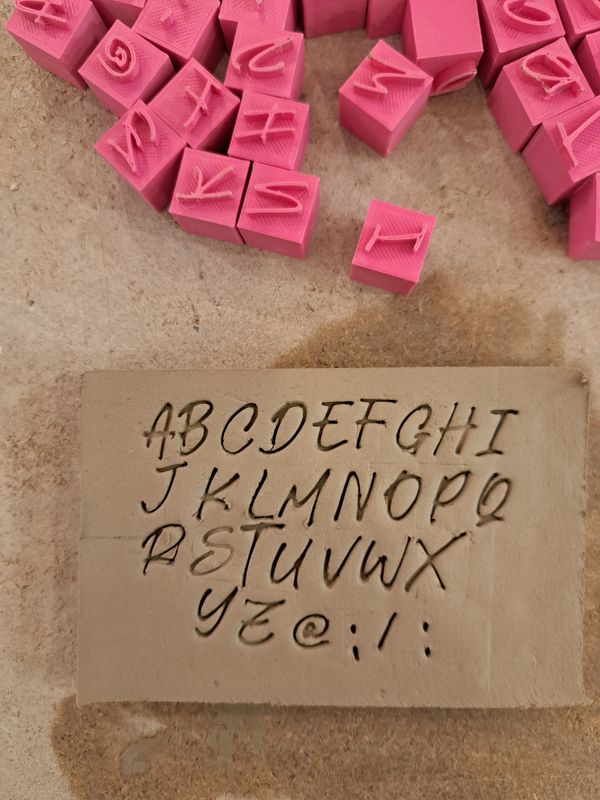 ABCDEFGHI
JKLMNOPQ
RSTUVWX
YZ@;/: